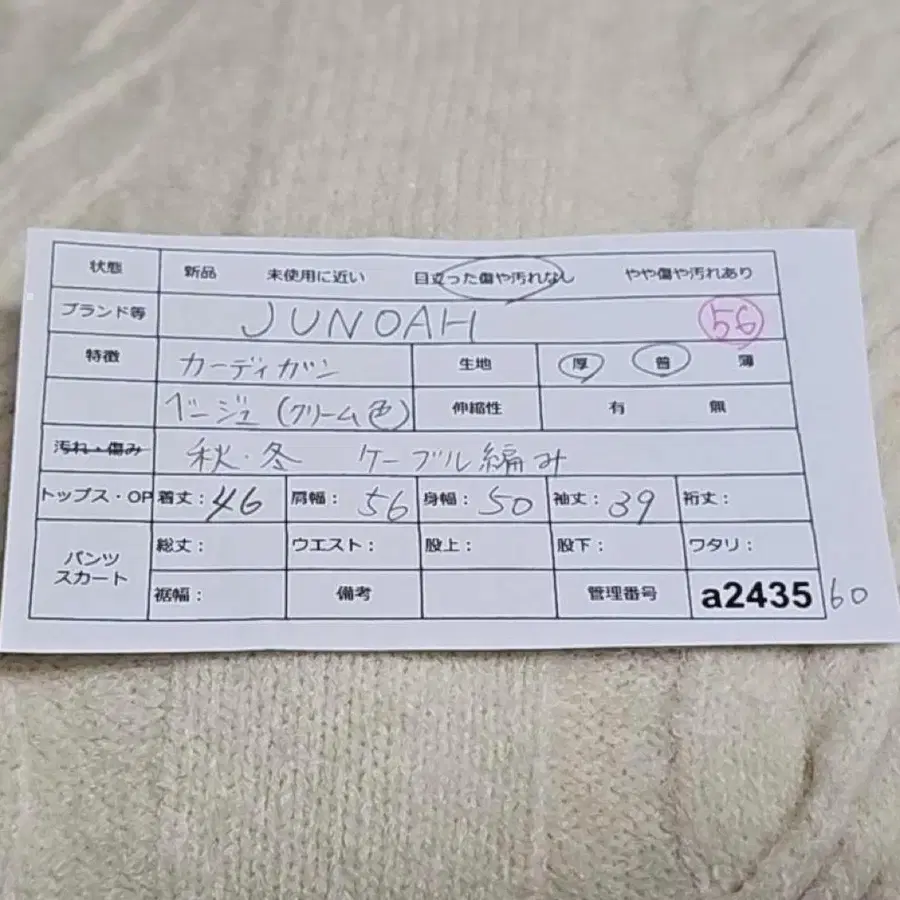 状態 新品 未使用に近い 目立った傷や汚れなし やや傷や汚れあり
ブランド等 JUNOAH 56
特徴 カーディガン 生地 厚 普 薄
ベージュ(クリーム色) 伸縮性 有 無
汚れ・傷み 秋・冬 ケーブル編み
トップス・OP 着丈:46 肩幅:56 身幅:50 袖丈:39 裄丈:
パンツ 総丈: ウエスト: 股上: 股下: ワタリ:
スカート 裾幅: 備考 管理番号 a2435 60